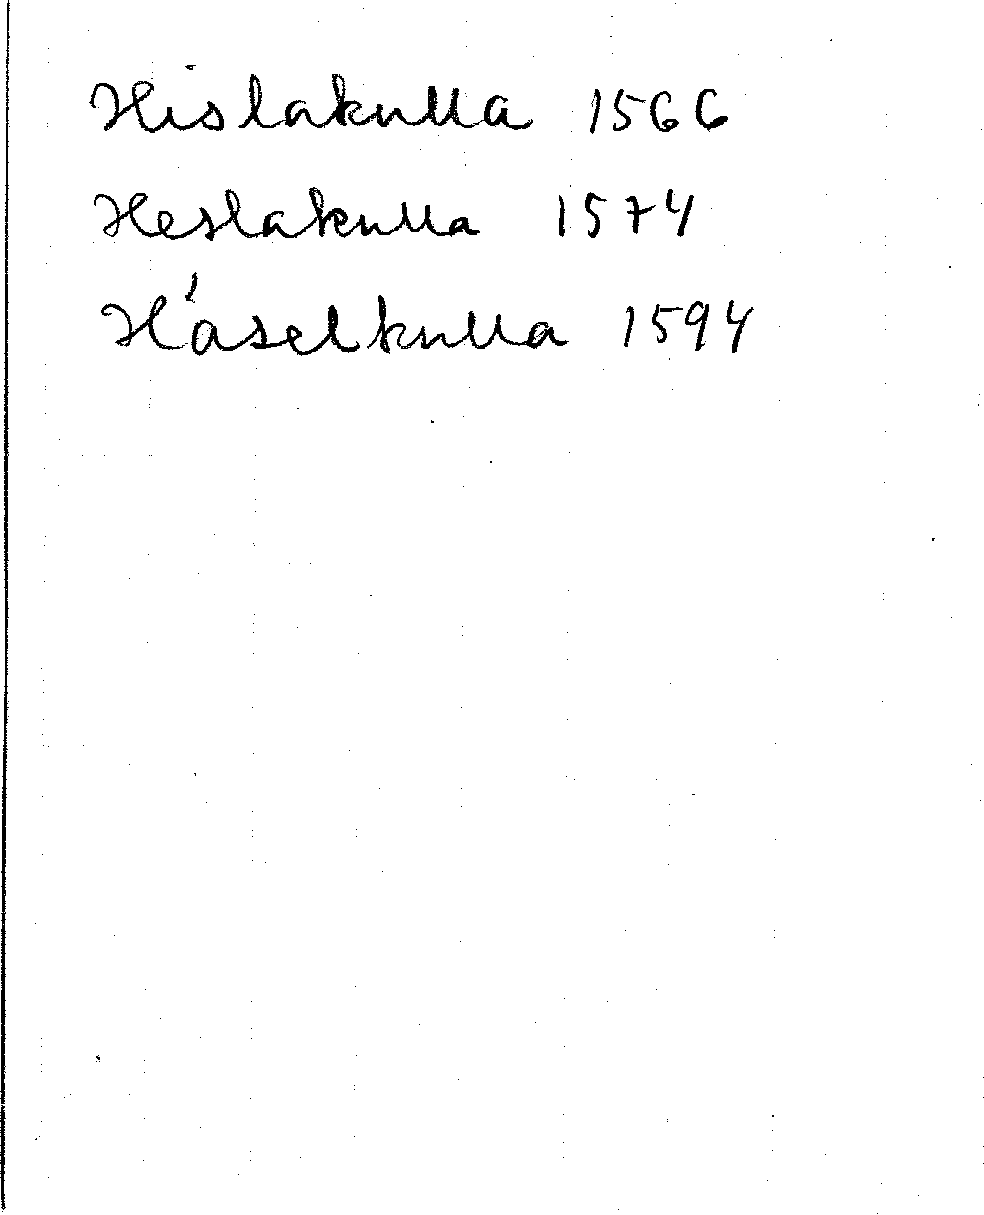 Hislakulla 1566
Heslakulla 1574
Háselkulla 1594